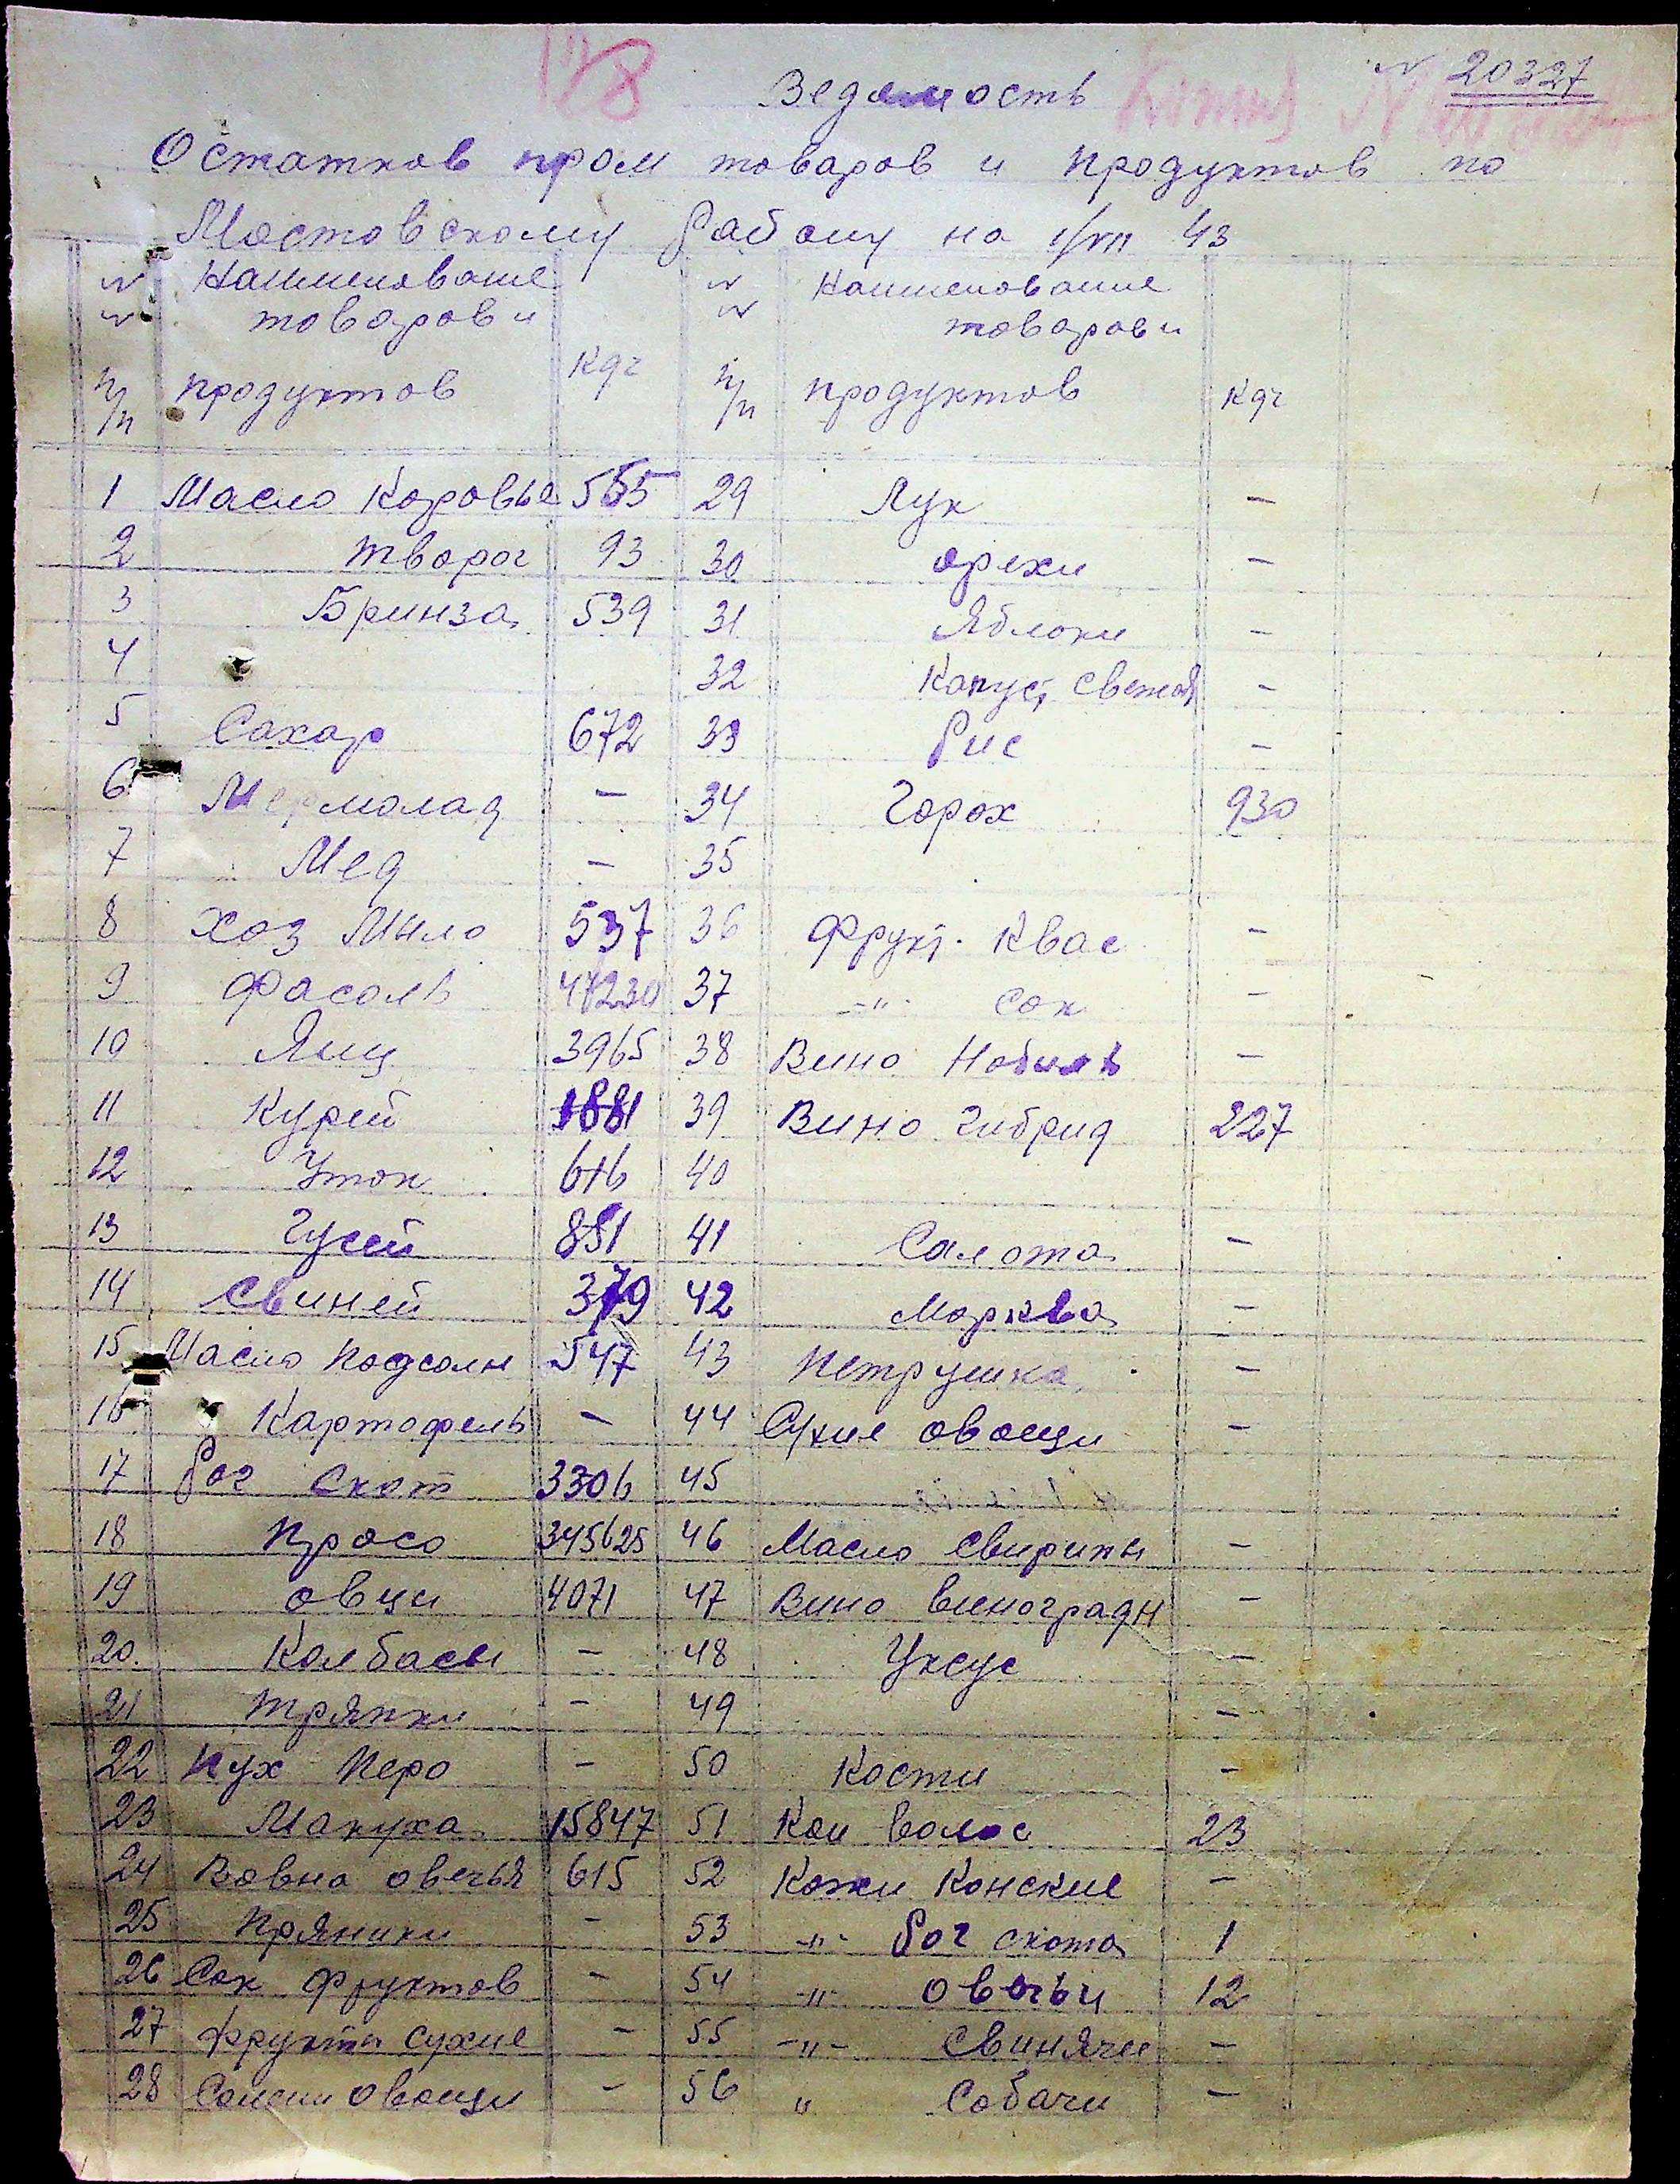 № 20327
Ведомость
Остатков пром товаров и продуктов по
Мостовскому Району на 1/VII 43
№ № п/п Наименование товаров и продуктов Кдг № № п/п Наименование товаров и продуктов Кдг
1 Масло Коровье 555 29 Лук -
2 Творог 93 30 орехи -
3 Бринза 539 31 Яблоки -
4 32 Капуст свежая -
5 Сахар 672 33 Рис -
6 Мермолад - 34 Горох 930
7 Мед - 35
8 Хоз Мыло 537 36 Фрукт. Квас -
9 Фасоль 47230 37 -"- Сок -
10 Яиц 3965 38 Вино Нобиль -
11 Курей 1881 39 Вино Гибрид 227
12 Уток 616 40
13 Гусей 851 41 Салота -
14 Свиней 379 42 Морква -
15 Масло Подсолн 547 43 Петрушка -
16 Картофель - 44 Сухие овощи -
17 Рог Скот 3306 45
18 Просо 345625 46 Масло -
19 овци 4071 47 Вино виноградн -
20. Колбасы - 48 Уксус -
21 Тряпки - 49 -
22 Пух Перо - 50 Кости -
23 Макуха 15847 51 Кон волос 23
24 Вовна овечья 615 52 Кожи Конские -
25 Пряники - 53 -"- Рог скота 1
26 Сок Фруктов - 54 -"- овечьи 12
27 Фрукты сухие - 55 -"- Свинячие -
28 овощи - 56 " Собачи -